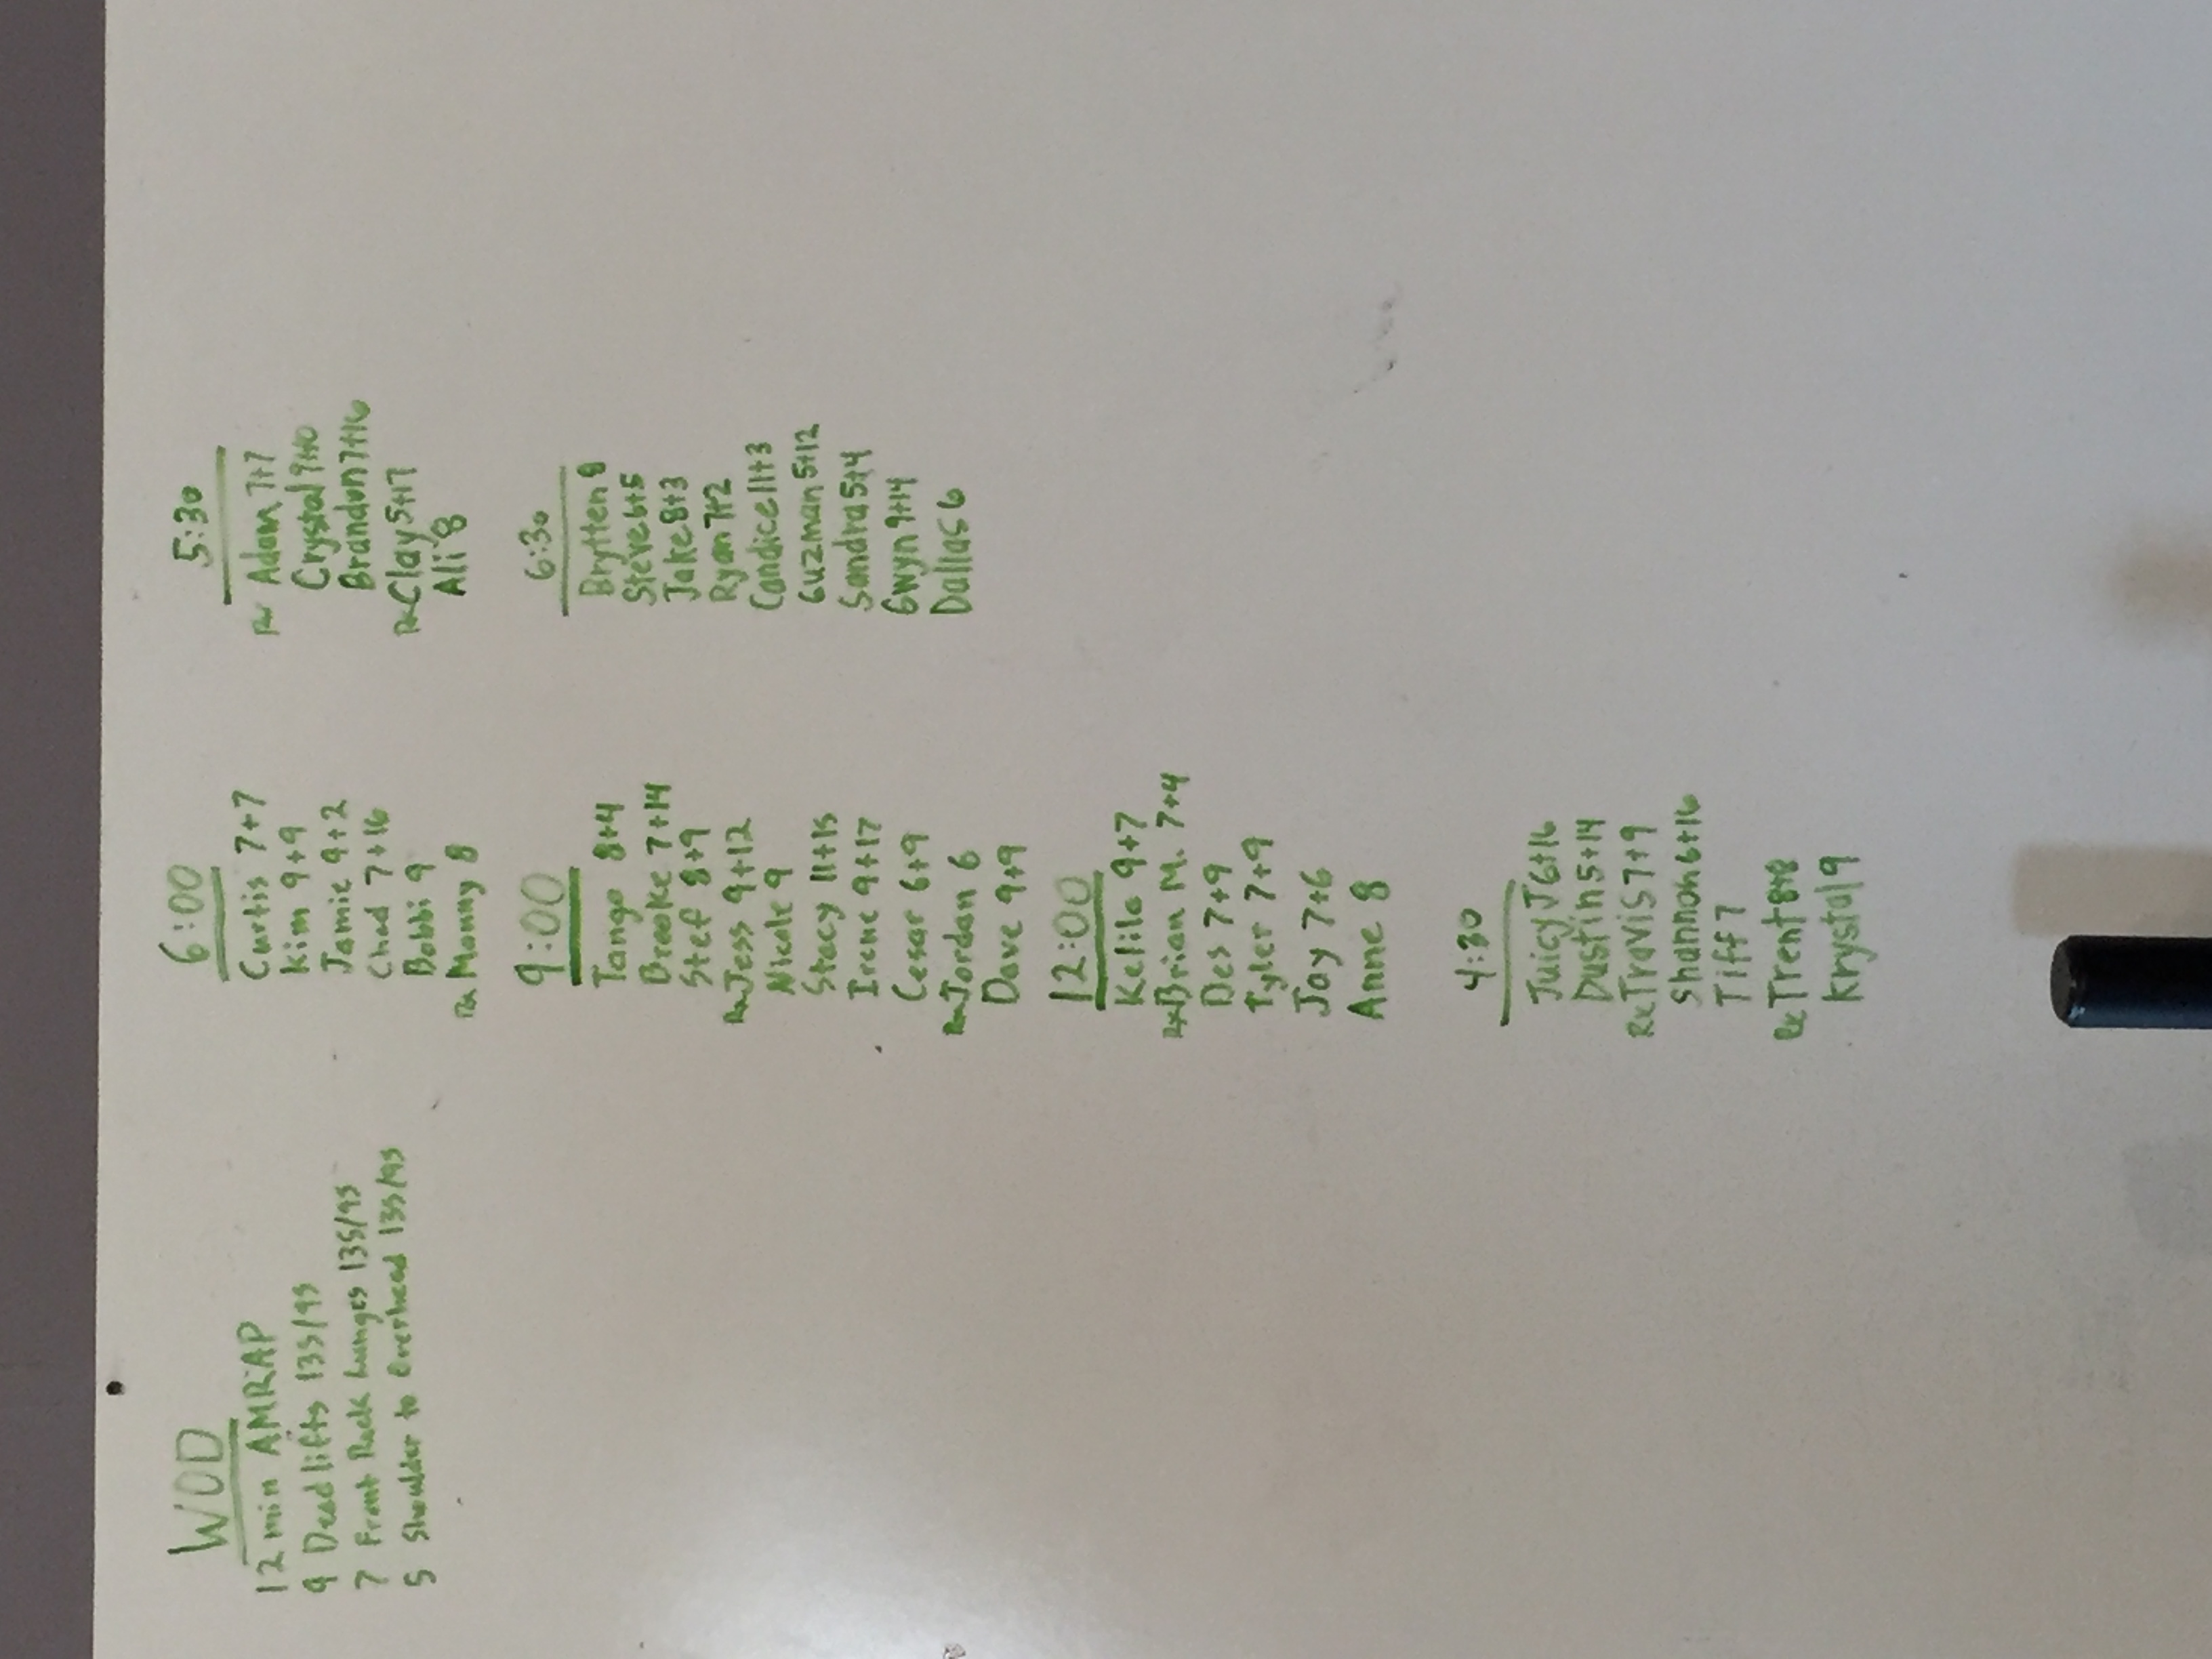 WOD
12 min AMRAP
9 Deadlifts 135/95
7 Front Rack Lunges 135/95
5 Shoulder to Overhead 135/95
6:00
Curtis 7+7
Kim 9+9
Jamie 9+2
Chad 7+16
Bobbi 9
Rx Manny 8
9:00
Tango 8+4
Brooke 7+14
Stef 8+9
Rx Jess 9+12
Nicole 9
Stacy 11+15
Irene 9+17
Cesar 6+9
Rx Jordan 6
Dave 9+9
12:00
Kelila 9+7
Rx Brian M. 7+4
Des 7+9
Tyler 7+9
Jay 7+6
Anne 8
4:30
Juicy J 6+16
Dustin 5+14
Rx Travis 7+9
Shannon 6+16
Tiff 7
Rx Trent 8+8
Krystal 9
5:30
Rx Adam 7+7
Crystal 9+10
Brandon 7+16
Rx Clay 5+17
Ali 8
6:30
Brytten 8
Steve 6+5
Jake 8+3
Ryan 7+2
Candice 11+3
Guzman 5+12
Sandra 5+4
Gwyn 9+14
Dallas 6